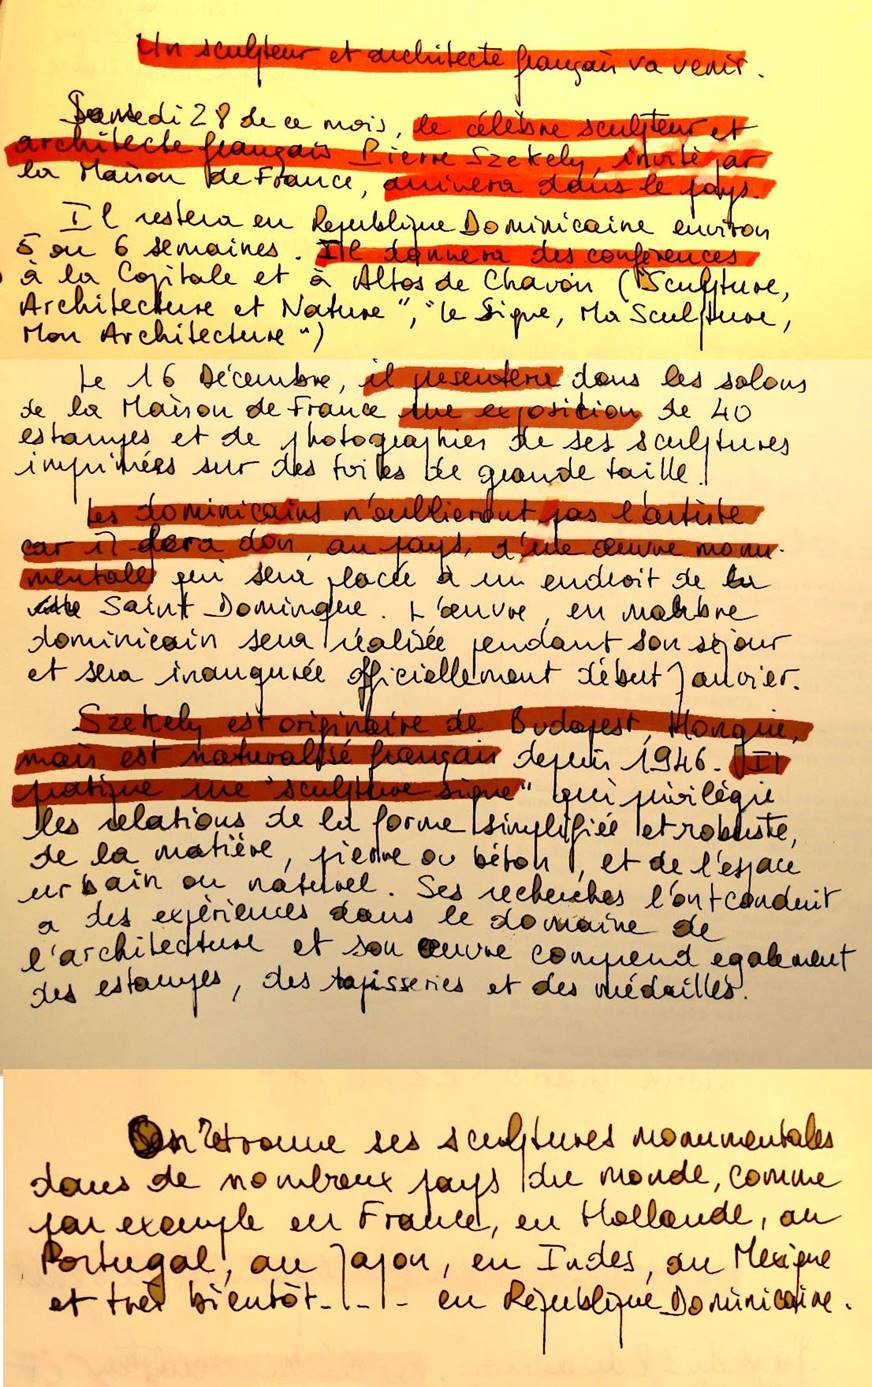 Un sculpteur et architecte français va venir.
Samedi 28 de ce mois, le célèbre sculpteur et
architecte français Pierre Szekely, invité par
la Maison de France, arrivera dans le pays.
Il restera en Republique Dominicaine environ
5 ou 6 semaines. Il donnera des conférences
à la Capitale et à Altos de Chavón ("Sculpture,
Architecture et Nature", "le Signe, Ma Sculpture,
Mon Architecture")
Le 16 Décembre, il presentera dans les salons
de la Maison de France une exposition de 40
estampes et de photographies de ses sculptures
imprimées sur des toiles de grande taille.
Les dominicains n'oublieront pas l'artiste
car il fera don, au pays, d'une œuvre monu-
mentale qui sera placée à un endroit de la
ville Saint Domingue. L'œuvre, en marbre
dominicain sera réalisée pendant son séjour
et sera inaugurée officiellement début Janvier.
Szekely est originaire de Budapest, Hongrie,
mais est naturalisé français depuis 1946. Il
pratique une "sculpture signe" qui privilégie
les relations de la forme simplifiée et robuste,
de la matière, pierre ou béton, et de l'espace
urbain ou naturel. Ses recherches l'ont conduit
a des expériences dans le domaine de
l'architecture et son œuvre comprend egalement
des estampes, des tapisseries et des médailles.
On retrouve ses sculptures monumentales
dans de nombreux pays du monde, comme
par exemple en France, en Hollande, au
Portugal, au Japon, en Indes, au Mexique
et très bientôt.... en République Dominicaine.